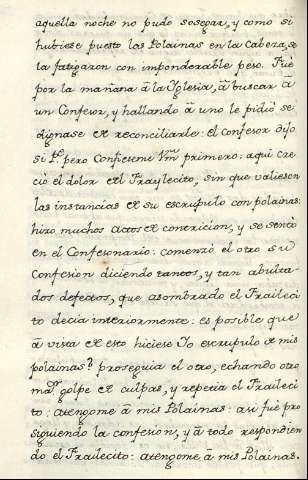 aquella noche no pudo sosegar, y como si
hubiese puesto las Polainas en la cabeza, se
la fatigaron con imponderable peso. Fuè
por la mañana â la Iglesia, â buscar â
un Confesor, y hallando â uno le pidiò se
dignase de reconciliarle: el confesor dijo
si Pe. pero Confieseme Vm primero: aqui cre-
ciò el dolor del Fraylecito, sin que valiesen
las instancias de su escrupulo con polainas:
hizo muchos actos de contricion, y se sentò
en el Confesonario: comenzò el otro su
Confesion diciendo tantos, y tan abulta-
dos defectos, que asombrado el Fraileci-
to decia interiormente: es posible que
â vista de esto hiciese Yo escrupulo de mis
polainas? proseguia el otro, echando otro
golpe de culpas, y repetia el Fraileci-
to: atengome â mis Polainas: asi fuè pro-
siguiendo la confesion, y â todo respondien-
do el Frailecito: atengome â mis Polainas.